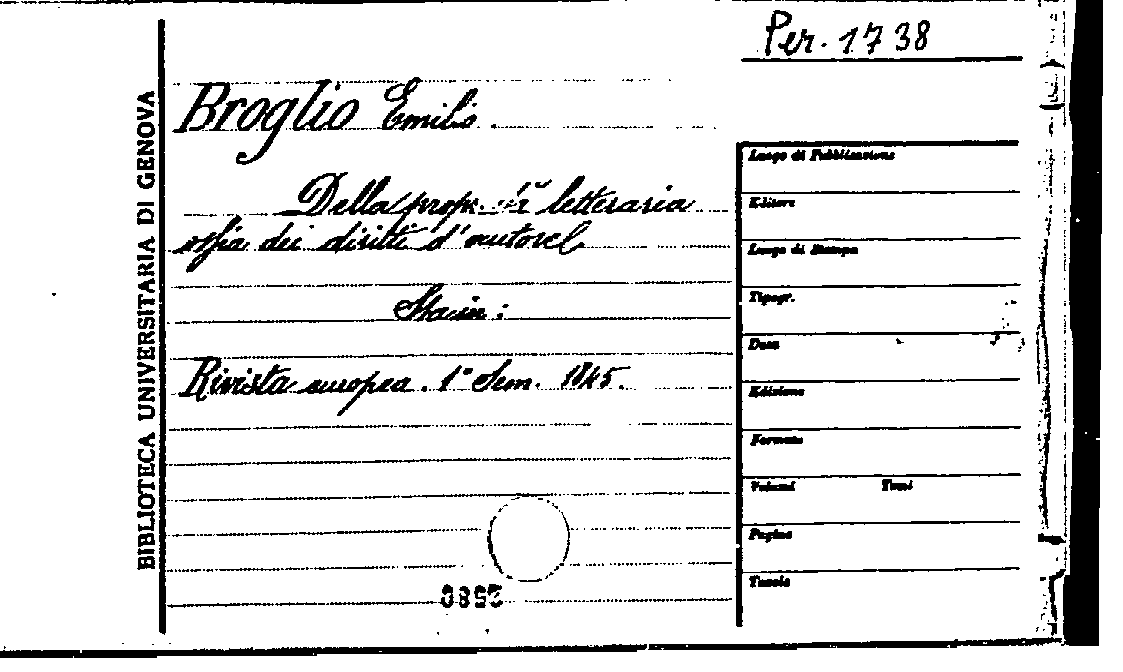 Per. 1738
BIBLIOTECA UNIVERSITARIA DI GENOVA
Broglio Emilio.
Della proprietà letteraria
ossia dei diritti d'autore
Sta in:
Rivista europea. 1° Sem. 1845.
Luogo di Pubblicazione
Editore
Luogo di Stampa
Tipogr.
Data
Edizione
Formato
Volumi Tomi
Pagine
Tavole